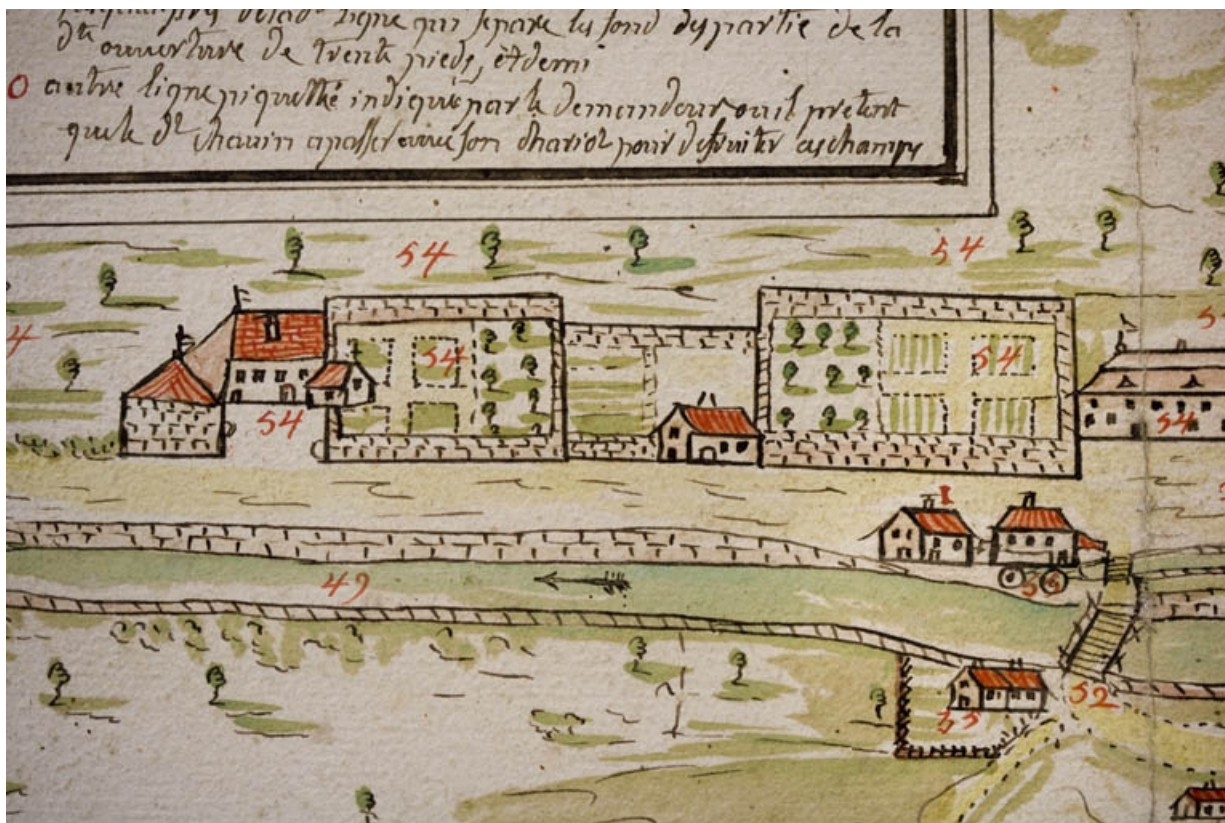 ligne qui separe les fond des partie de la
dte ouverture de trente pieds, et demi
O autre ligne piquetté indiqué par le demandeur ou il pretent
que le dt chauin a passé avec son chariot pour defruiter ces champs
54 54
54 54
54 54
1
49 56
52
55